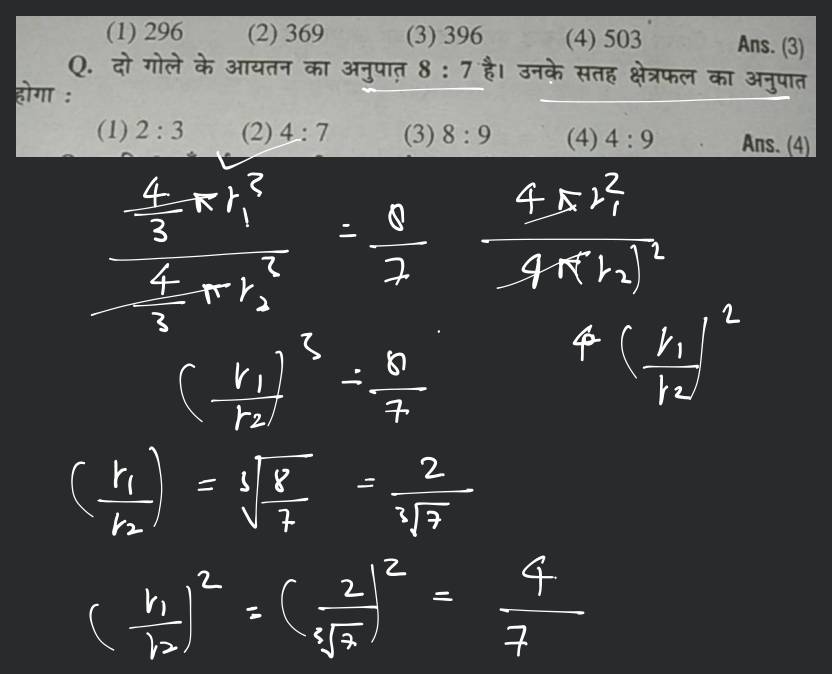 (1) 296 (2) 369 (3) 396 (4) 503 Ans. (3)
Q. दो गोले के आयतन का अनुपात़ 8 : 7 है। उनके सतह क्षेत्रफल का अनुपात
होगा :
(1) 2 : 3 (2) 4 : 7 (3) 8 : 9 (4) 4 : 9 Ans. (4)
(4/3 π r₁³) / (4/3 π r₂³) = 8/7
(4 π r₁²) / (4 π (r₂)²)
(r₁/r₂)³ = 8/7
(r₁/r₂)²
(r₁/r₂) = ³√(8/7) = 2/³√7
(r₁/r₂)² = (2/³√7)² = 4/7